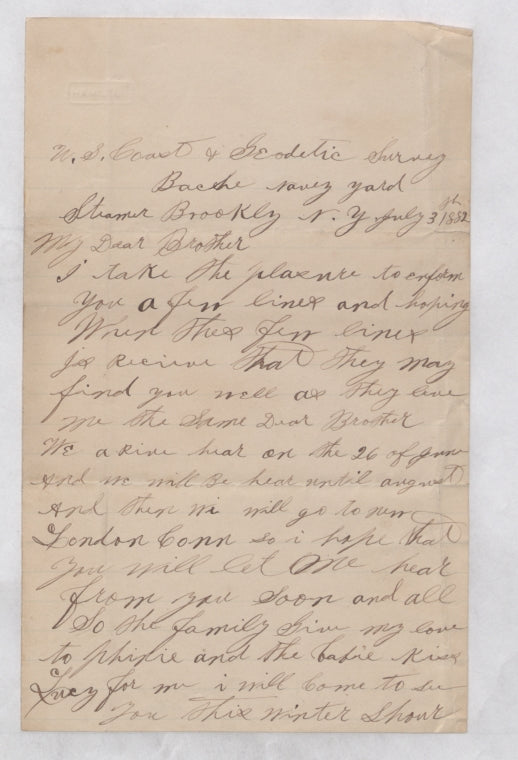 U.S. Coast & Geodetic Survey
Bache navey yard
Steamer Brookly N.Y. July 3th 1882
My Dear Brother
I take the plasure to enform
You a few lines and hoping
When thes few lines
Is recieve that they may
find you well as they leve
me the Same Dear Brother
We arive hear on the 26 of June
And we will Be hear until august
And then wi will go to
London Conn so i hope that
You will let Me hear
from you Soon and all
So the family Give my love
to and the babie Kiss
Lucy for me i will Come to see
You This winter Shour